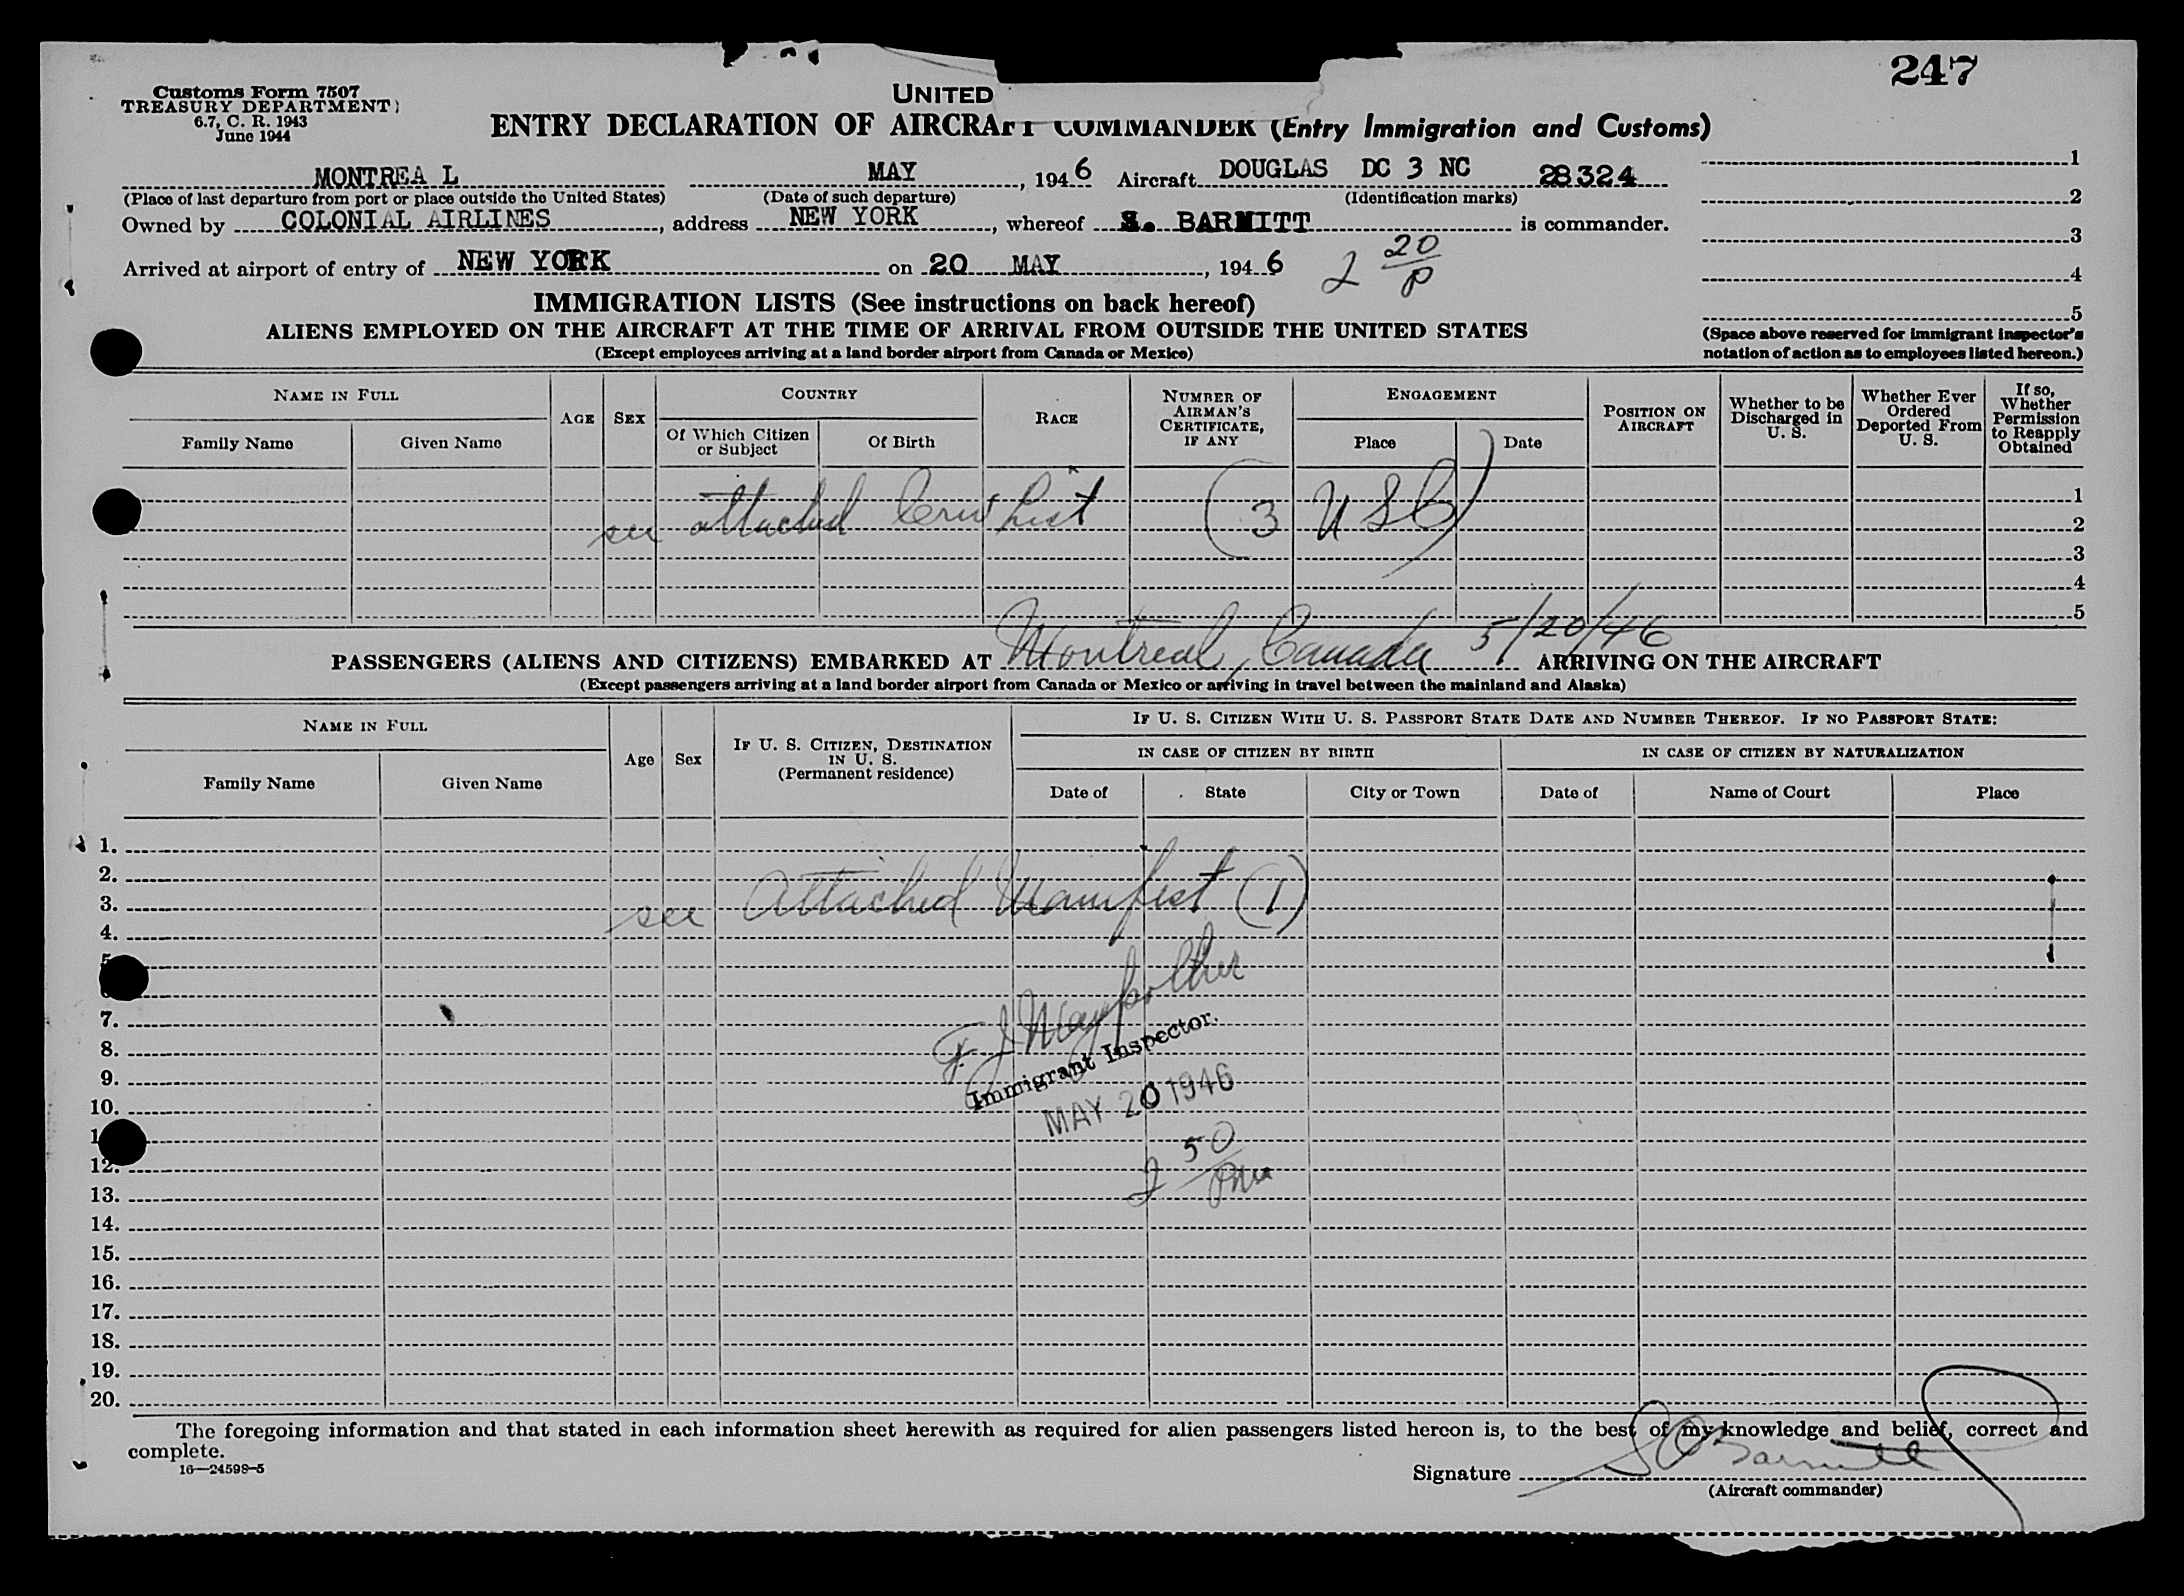 247
Customs Form 7507
TREASURY DEPARTMENT
6.7, C. R. 1943
June 1944
UNITED
ENTRY DECLARATION OF AIRCRAFT COMMANDER (Entry Immigration and Customs)
MONTREA L MAY , 194 6 Aircraft DOUGLAS DC 3 NC 28324
(Place of last departure from port or place outside the United States) (Date of such departure) (Identification marks)
Owned by COLONIAL AIRLINES , address NEW YORK , whereof S. BARMITT is commander.
Arrived at airport of entry of NEW YORK on 20 MAY , 194 6 2 20/P
1
2
3
4
5
(Space above reserved for immigrant inspector's
notation of action as to employees listed hereon.)
IMMIGRATION LISTS (See instructions on back hereof)
ALIENS EMPLOYED ON THE AIRCRAFT AT THE TIME OF ARRIVAL FROM OUTSIDE THE UNITED STATES
(Except employees arriving at a land border airport from Canada or Mexico)
NAME IN FULL
Family Name Given Name
AGE SEX
COUNTRY
Of Which Citizen
or Subject
Of Birth
RACE
NUMBER OF
AIRMAN'S
CERTIFICATE,
IF ANY
ENGAGEMENT
Place Date
POSITION ON
AIRCRAFT
Whether to be
Discharged in
U. S.
Whether Ever
Ordered
Deported From
U. S.
If so,
Whether
Permission
to Reapply
Obtained
1
see attached Crew List (3 USC)
2
3
4
5
PASSENGERS (ALIENS AND CITIZENS) EMBARKED AT Montreal, Canada 5/20/46 ARRIVING ON THE AIRCRAFT
(Except passengers arriving at a land border airport from Canada or Mexico or arriving in travel between the mainland and Alaska)
NAME IN FULL
Family Name Given Name
Age Sex
IF U. S. CITIZEN, DESTINATION
IN U. S.
(Permanent residence)
IF U. S. CITIZEN WITH U. S. PASSPORT STATE DATE AND NUMBER THEREOF. IF NO PASSPORT STATE:
IN CASE OF CITIZEN BY BIRTH IN CASE OF CITIZEN BY NATURALIZATION
Date of State City or Town Date of Name of Court Place
1.
2.
3. see Attached Manifest (1)
4.
5
7.
8.
Immigrant Inspector.
9.
10.
MAY 20 1946
1
12.
2 50/PM
13.
14.
15.
16.
17.
18.
19.
20.
The foregoing information and that stated in each information sheet herewith as required for alien passengers listed hereon is, to the best of my knowledge and belief, correct and
complete.
16—24598-5
Signature S Barmitt
(Aircraft commander)